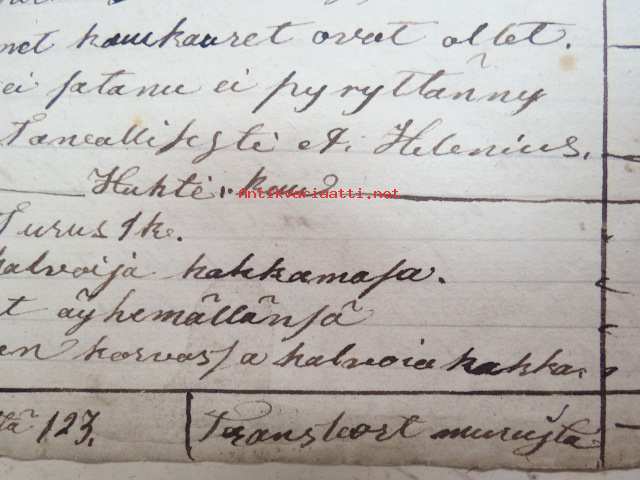 net kaukauret ovat ollet.
ei satanu ei pyryttänny
Taneallisesti A. Helenius.
Huhti.kau
Antikvariaatti.net
Turus 1 k.
halvoija hakkamasa.
t äyhemällänsä
en korvassa halvoia hakka
tä 123.
Transkort murusta